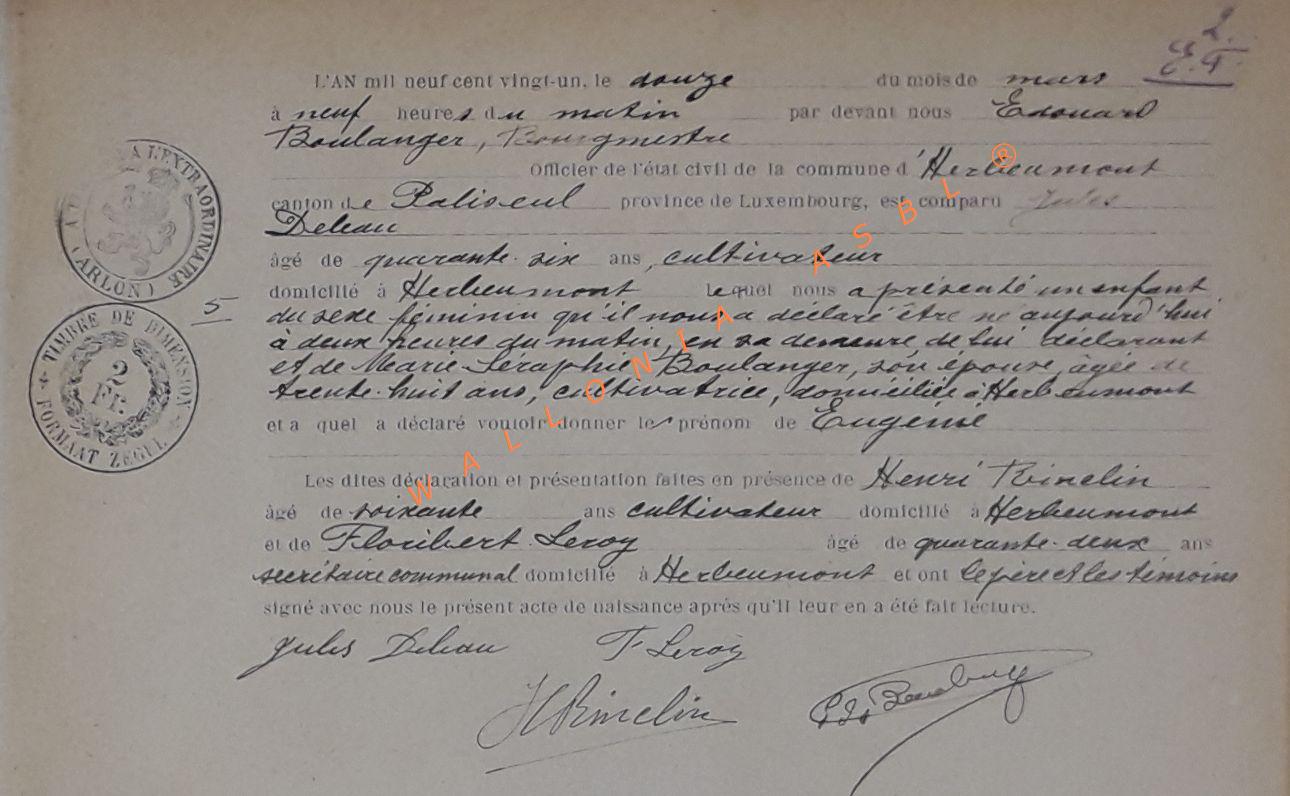 2.
E.T.
L'AN mil neuf cent vingt-un, le douze du mois de mars
à neuf heures du matin par devant nous Edouard
Boulanger, Bourgmestre
Officier de l'état civil de la commune d'Herbeumont
canton de Paliseul province de Luxembourg, est comparu Jules
Deleau
âgé de quarante-six ans, cultivateur
domicilié à Herbeumont lequel nous a présenté un enfant
du sexe féminin qu'il nous a déclaré être né aujourd'hui
à deux heures du matin, en sa demeure de lui déclarant
et de Marie-Séraphie Boulanger, son épouse, âgée de
trente-huit ans, cultivatrice, domiciliée à Herbeumont
et a quel a déclaré vouloir donner le prénom de Eugénie
Les dites déclaration et présentation faites en présence de Henri
âgé de soixante ans cultivateur domicilié à Herbeumont
et de Floribert Leroy âgé de quarante-deux ans
secrétaire communal domicilié à Herbeumont et ont le père et les témoins
signé avec nous le présent acte de naissance après qu'il leur en a été fait lecture.
Jules Deleau F Leroy
A L'EXTRAORDINAIRE
(ARLON)
5
TIMBRE DE DIMENSION
2
Fr.
FORMAAT ZEGEL
WALLONIA ASBL ®